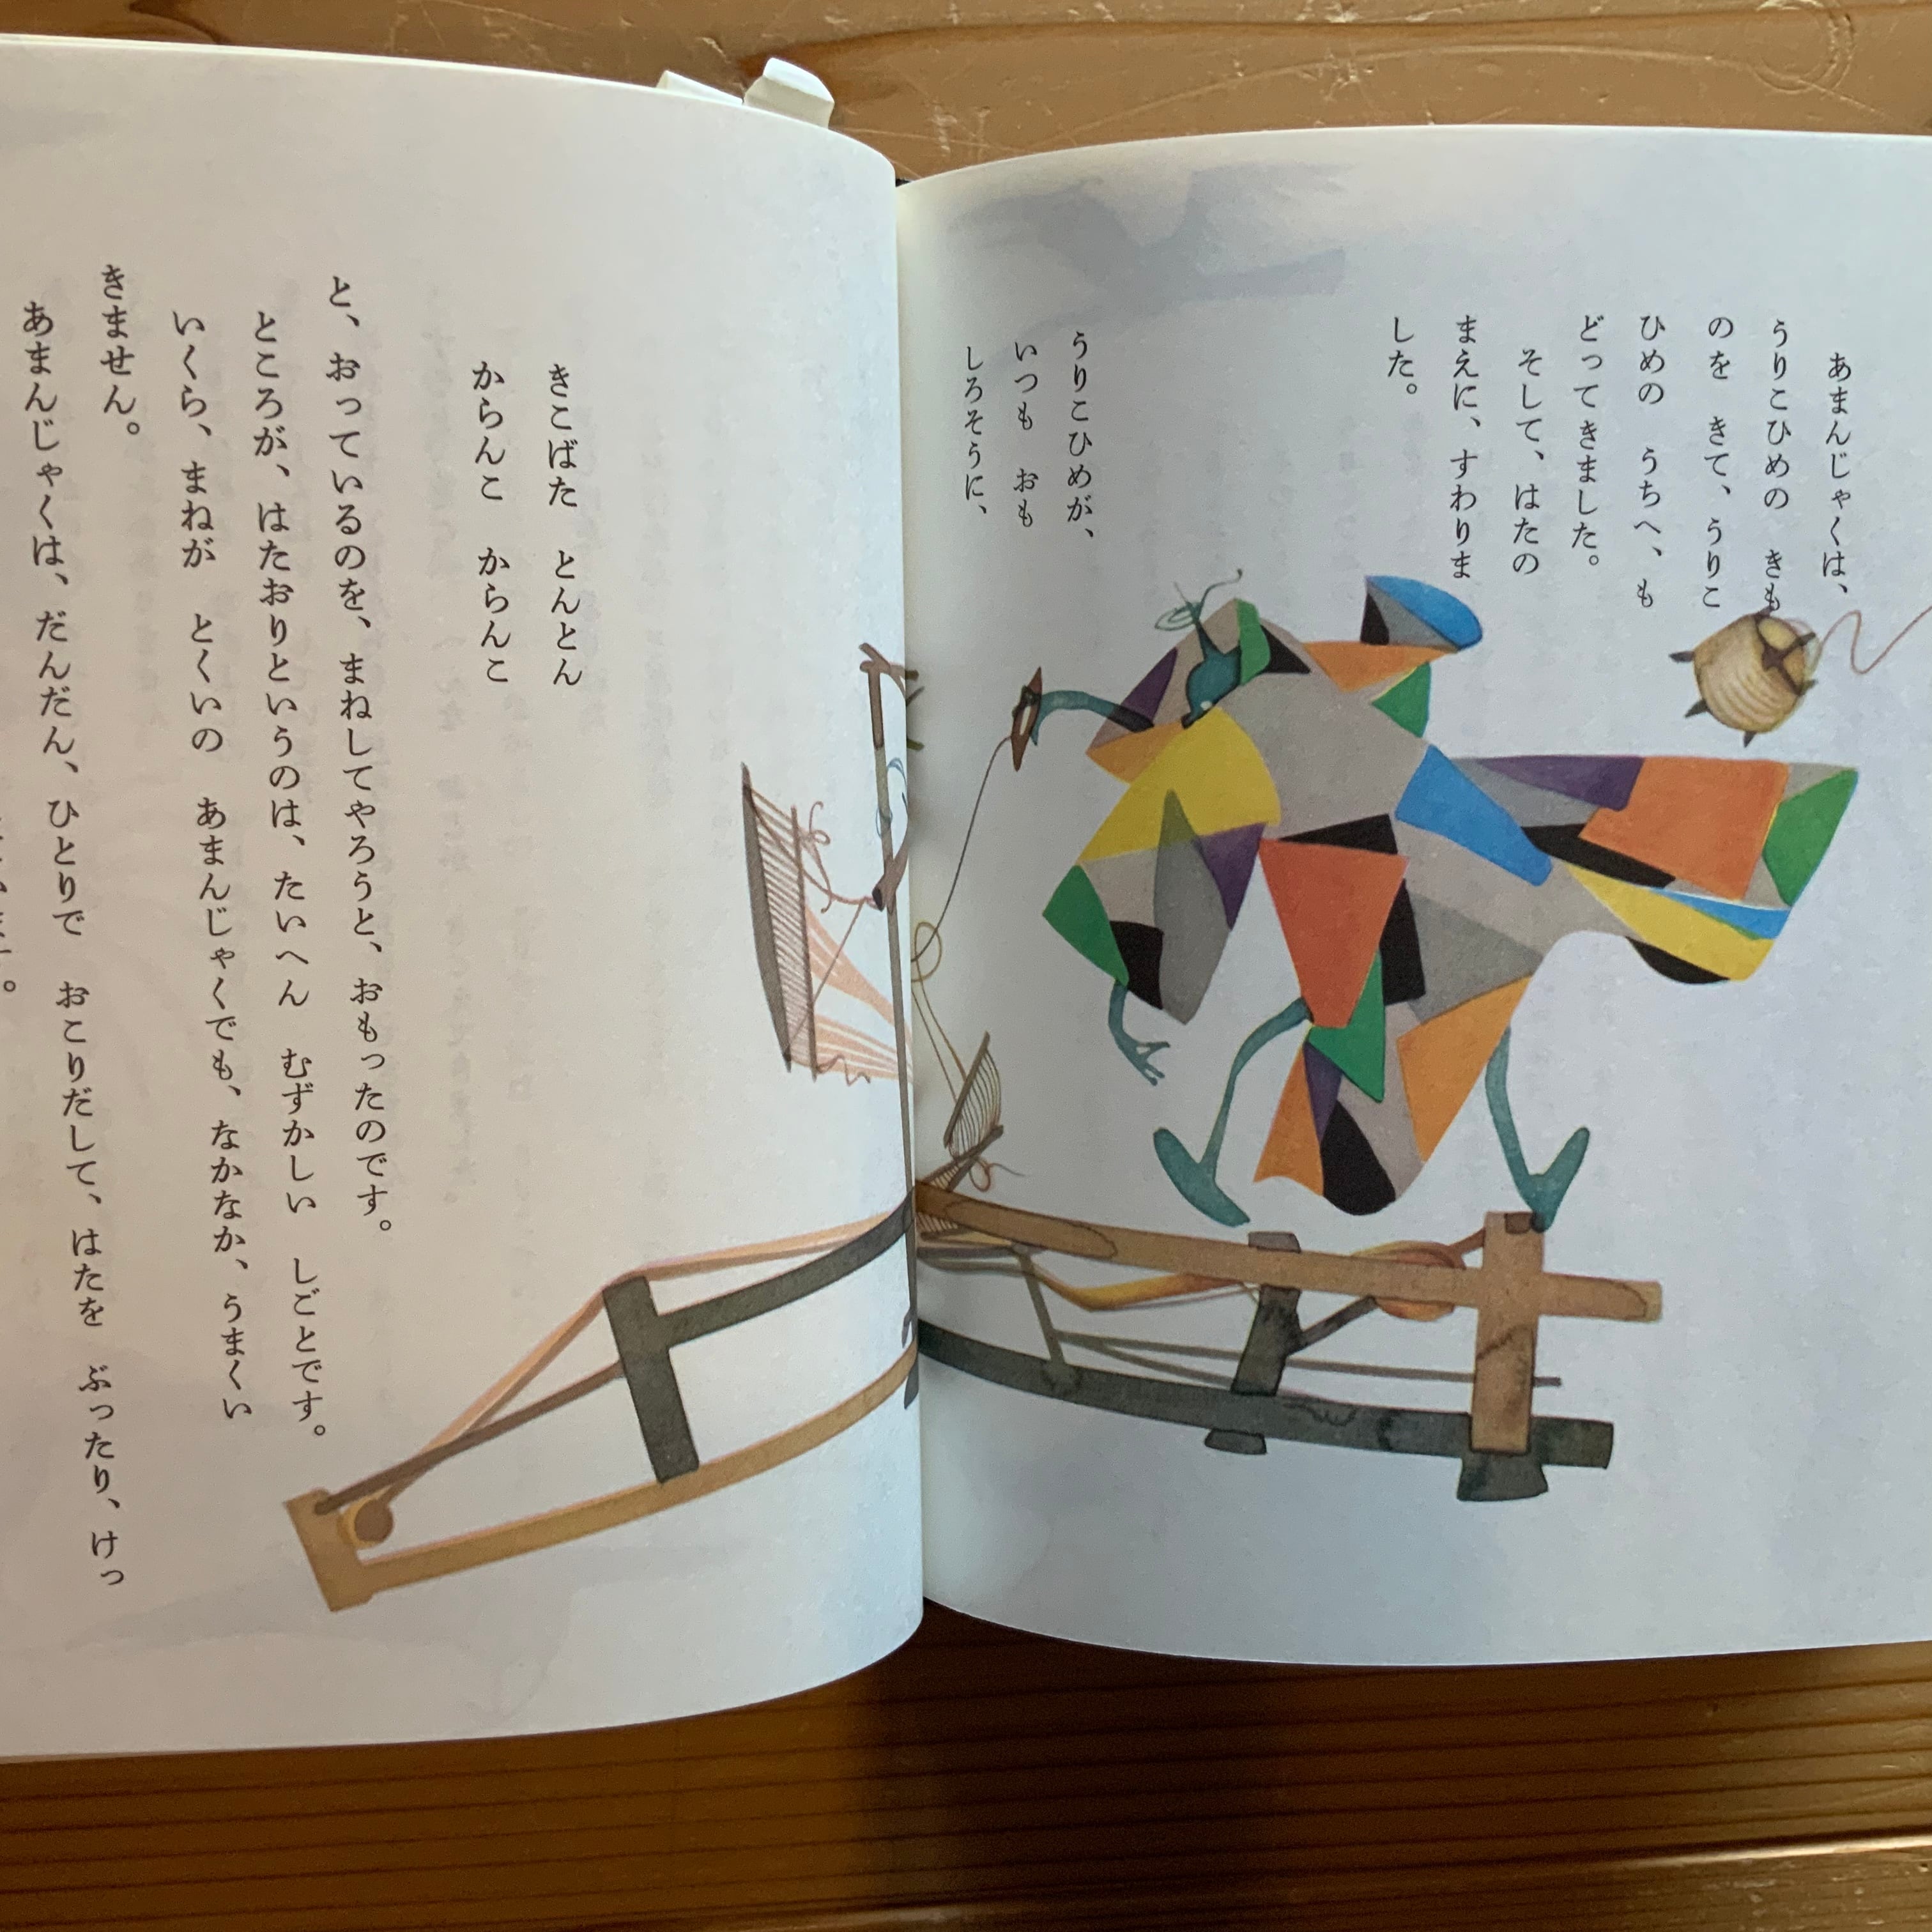 あまんじゃくは、
うりこひめの　きも
のを　きて、うりこ
ひめの　うちへ、も
どってきました。
そして、はたの
まえに、すわりま
した。
うりこひめが、
いつも　おも
しろそうに、
きこばた　とんとん
からんこ　からんこ
と、おっているのを、まねしてやろうと、おもったのです。
ところが、はたおりというのは、たいへん　むずかしい　しごとです。
いくら、まねが　とくいの　あまんじゃくでも、なかなか、うまくい
きません。
あまんじゃくは、だんだん、ひとりで　おこりだして、はたを　ぶったり、けっ